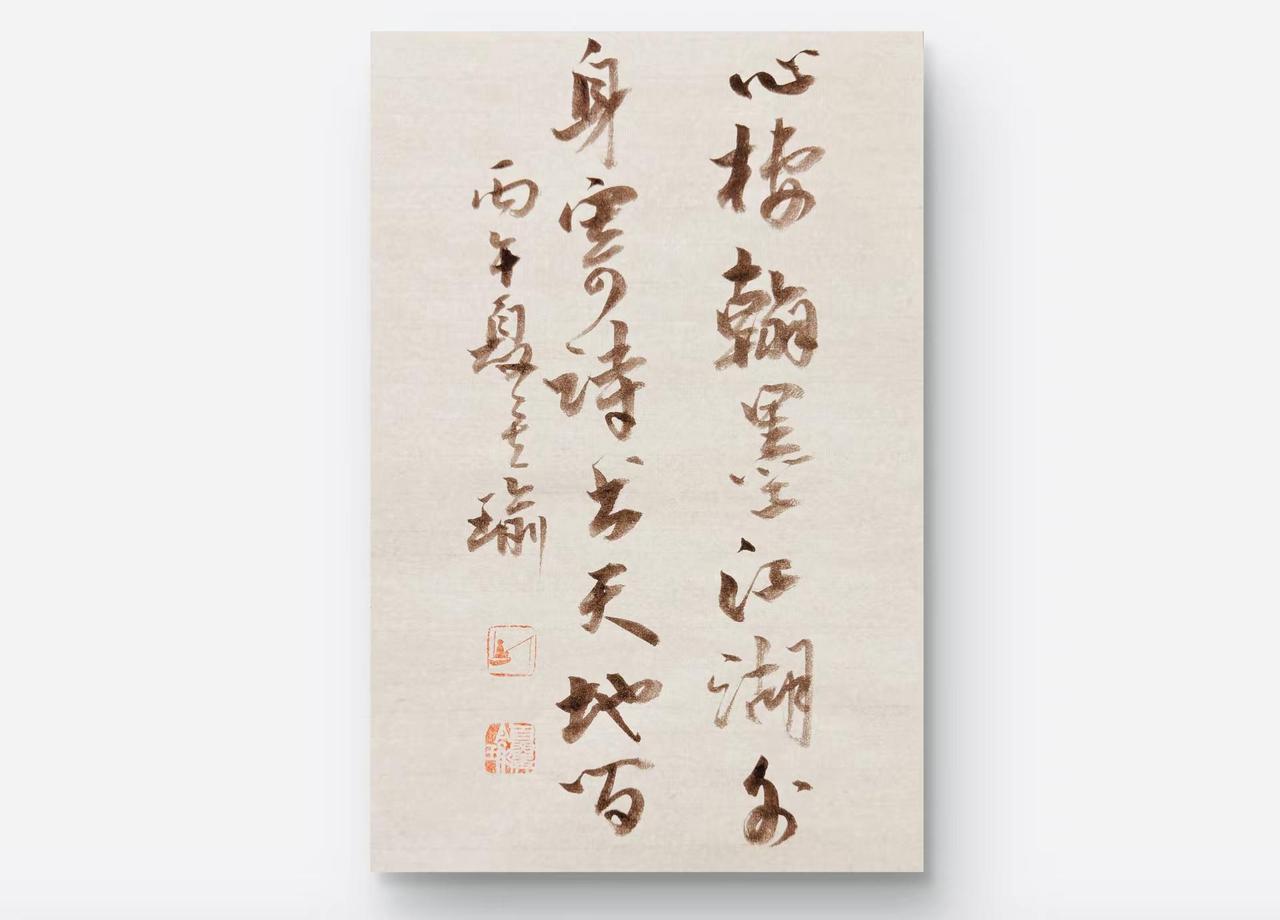 心棲翰墨江湖外
身寄詩書天地間
丙午夏 瑜